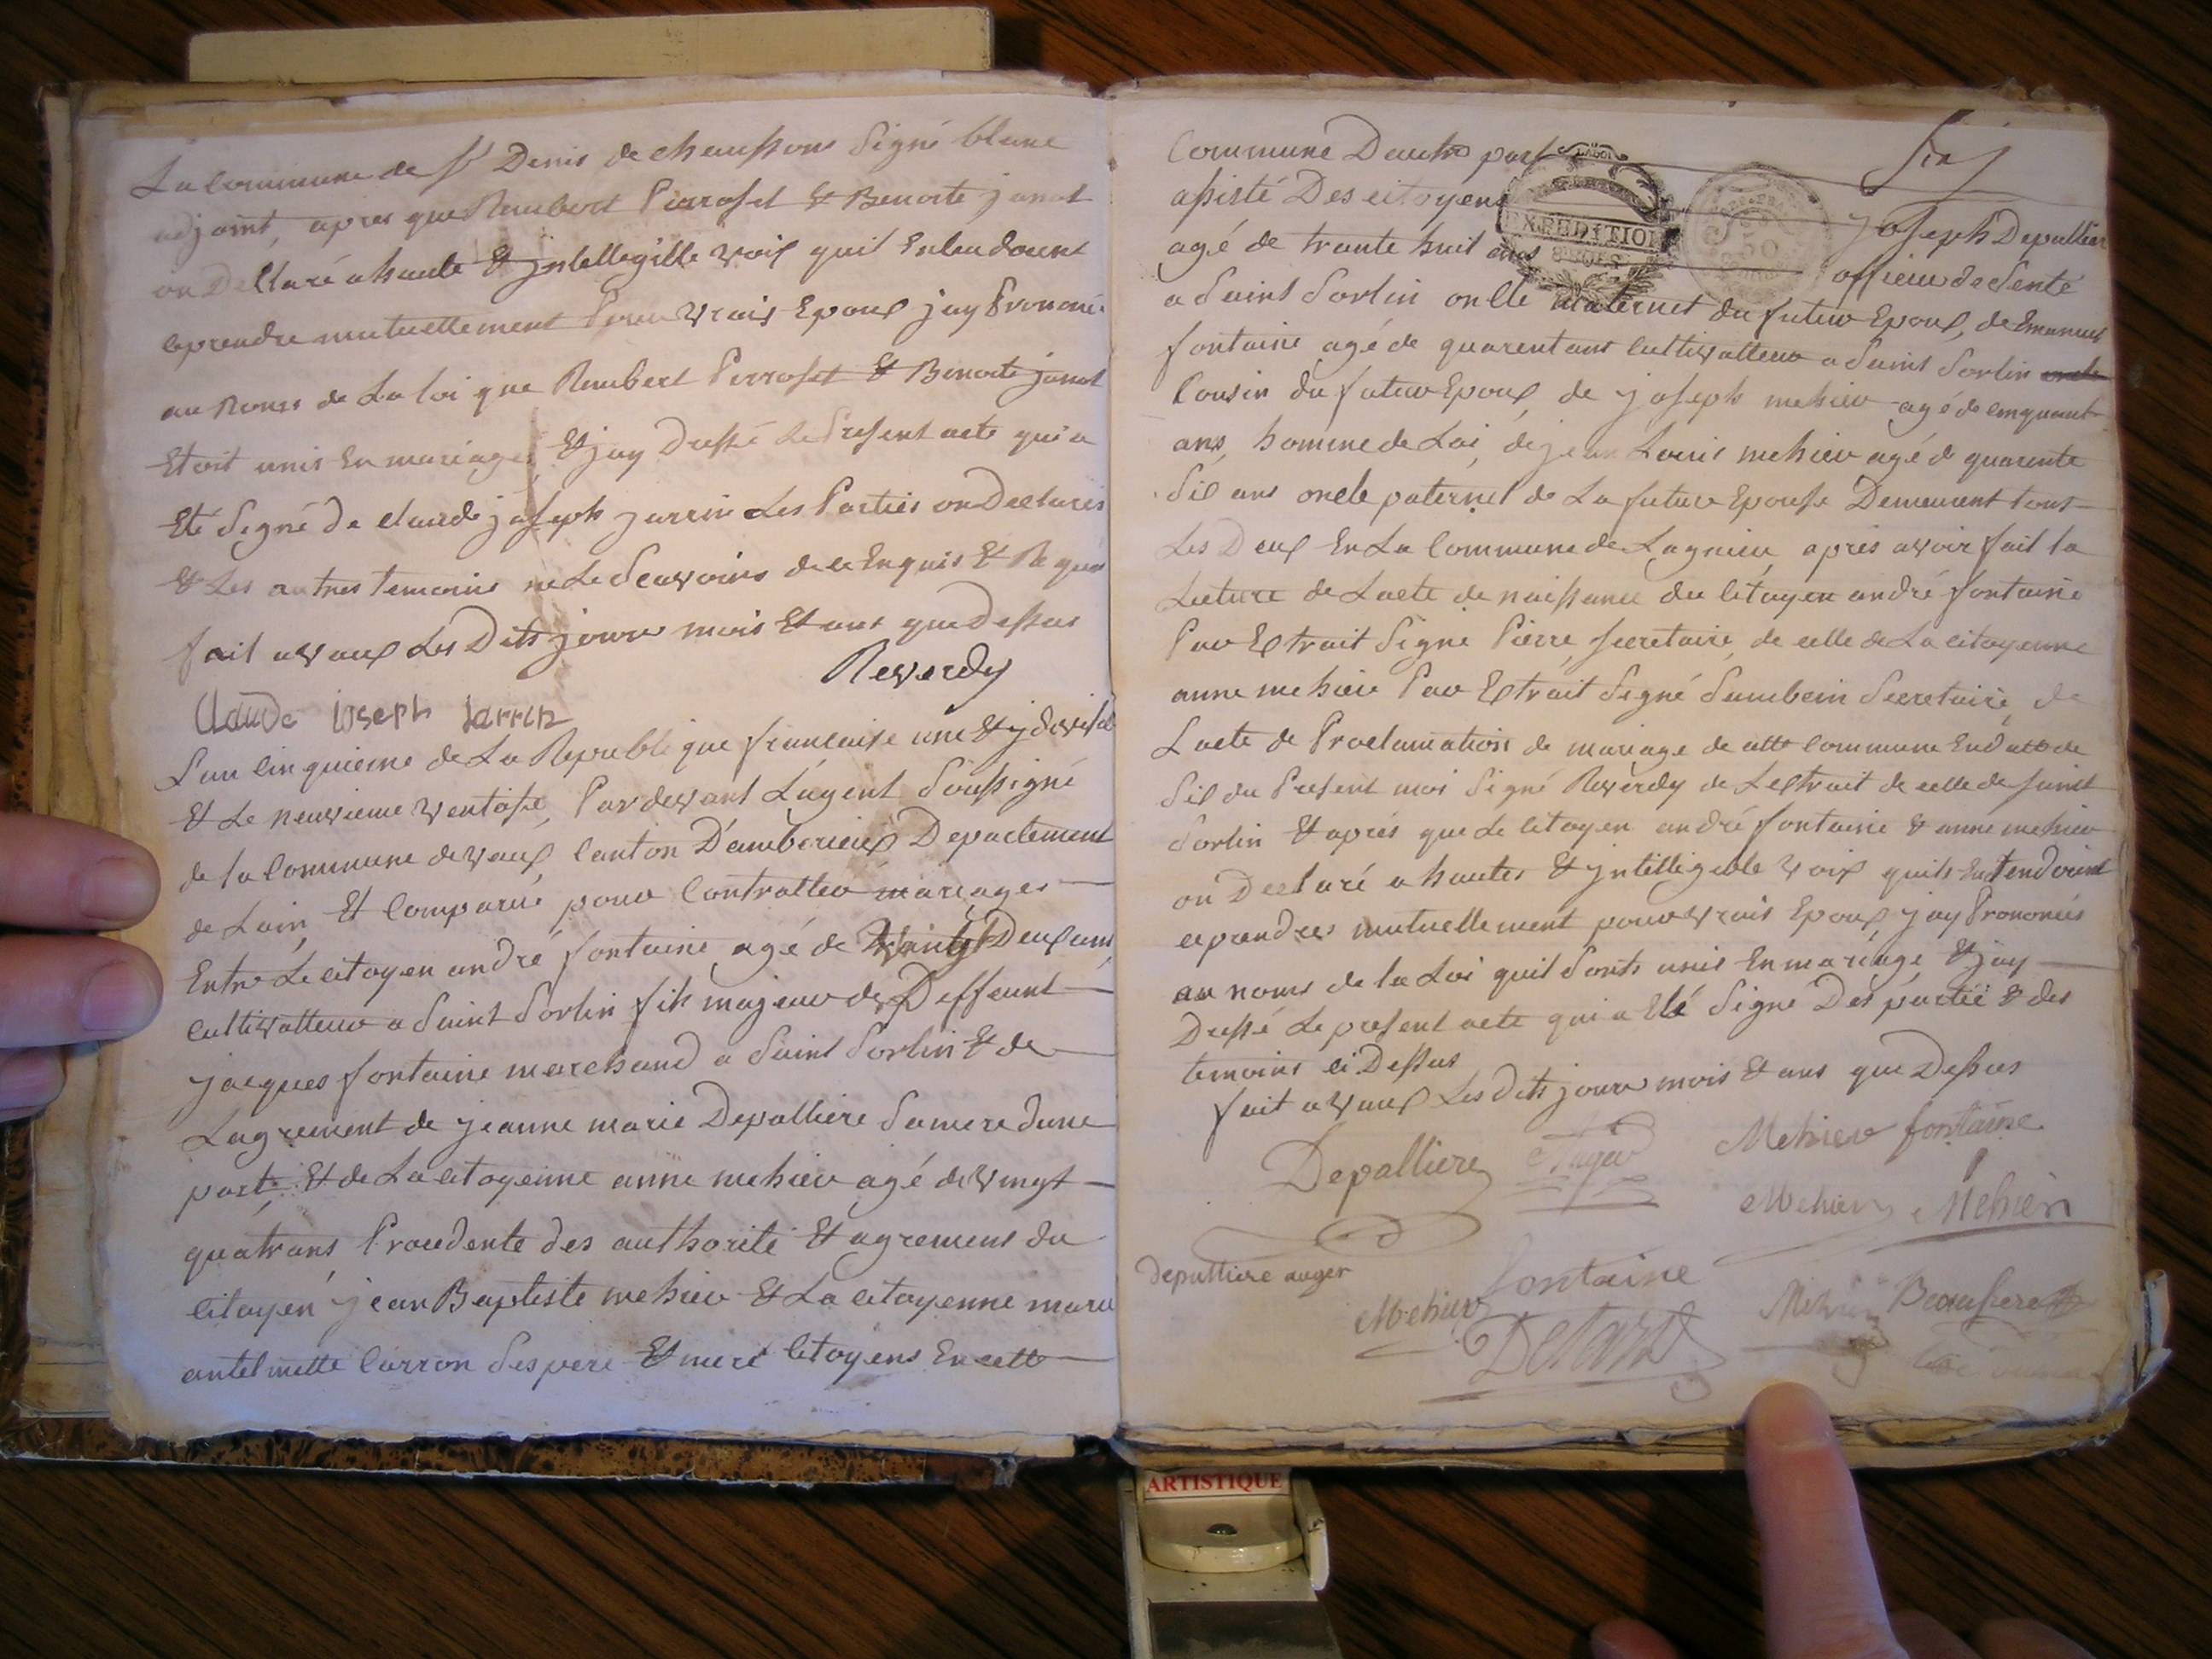 La Commune de St Denis de chaussons Signé blanc
adjoint, apres que Rambert Pierroset & Benoite janot
on Dellaré a haute & jntellegille voix quil Entendoient
ceprendre mutuellement Pour vrais Epoux jay Prononcé
au Noms de La loi que Rambert Perroset & Benoite janot
Etoit unis En mariage, Et jay Dressé Le Present acte qui a
Eté Signé De claude joseph jarrin Les Parties on Declarés
& Les autres temoins ne Le Scavoirs de ce Enquis Et Requis
fait a vaux Les Dits jour mois Et ans que Dessus
Reverdy
Claude ioseph Jarrin
L'an Cinquieme de La Republique francaise une Et jdivisible
Et Le neuvieme ventose, Pardevant L'agent Soussigné
de la Commune de vaux, Canton D'amberieux Departement
de Lain, Et Comparus pour Contratter mariages
Entre Le citoyen andré fontaine agé de vaingt Deux ans,
Cultivatteur a Saint Sorlin fils majeur de Deffeunt
jacques fontaine marchand a Saint Sorlin & de
Lagrement de jeanne marie Depalliere Sa mere dune
part, Et de La citoyenne anne mehier agé de vingt
quatrans, Procedente des authorité Et agrement du
Citoyen jean Baptiste mehier & La citoyenne marie
antelmette Carron Ses pere Et mere Citoyens En cette
Commune Dautre part
assisté Des citoyens Joseph Depallier
EXPEDITION
50
agé de trante huit ans officier de Senté
a Saint Sorlin oncle maternel du futeur Epoux, de Emanuel
fontaine agé de quarentans Cultivatteur a Saint Sorlin oncle
Cousin du futeur Epoux, de joseph mehier agé de Cinquant
ans, homme de Loi, de jean Louis mehier agé de quarente
Six ans oncle paternel de La future Epouse Demeurant tous
Les Deux En La Commune de Lagnieu, apres avoir fait la
Lecture de Lacte de naissance du Citoyen andré fontaine
Par Extrait Signe Pierre, Secretaire, de celle de La citoyenne
anne mehier Par Extrait Signé Sambein Secretaire, de
Lacte de Proclamation de mariage de cette Commune En datte de
Six du Present moi Signé Reverdy de Lextrait de celle de Saint
Sorlin & aprés que Le Citoyen andré fontaine & anne mehier
on Declaré a hautes & jntilligeble voix quils Entendoint
ceprendres mutuellement pour vrais Epoux, jay Prononcés
au noms de la Loi quil Sonts unis En mariage, Et jay
Dressé Le present acte qui a Eté Signé Des partië & des
temoins ci Dessus
fait a vaux Les dits jour mois & ans que Dessus
Depalliere Mehier fontaine
Mehier Mehier
depalliere auger
Mehier fontaine Mehier Beaussere
ARTISTIQUE